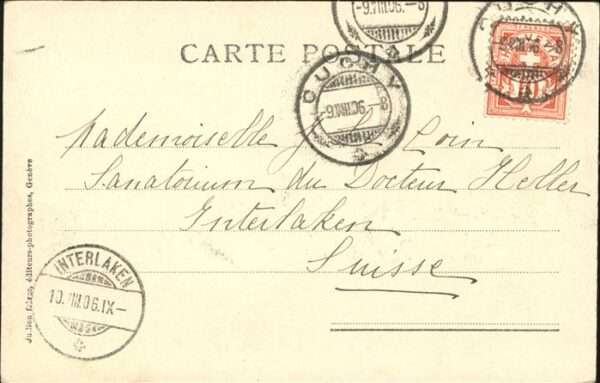 -9.VIII.06.-8
CARTE POSTALE
OUCHY
-9.VIII.06.-8
OUCHY
10
Mademoiselle Loin
Sanatorium du Docteur Heller
Interlaken
Suisse
INTERLAKEN
10.VIII.06.IX-
Jullien frères, éditeurs-photographes, Genève